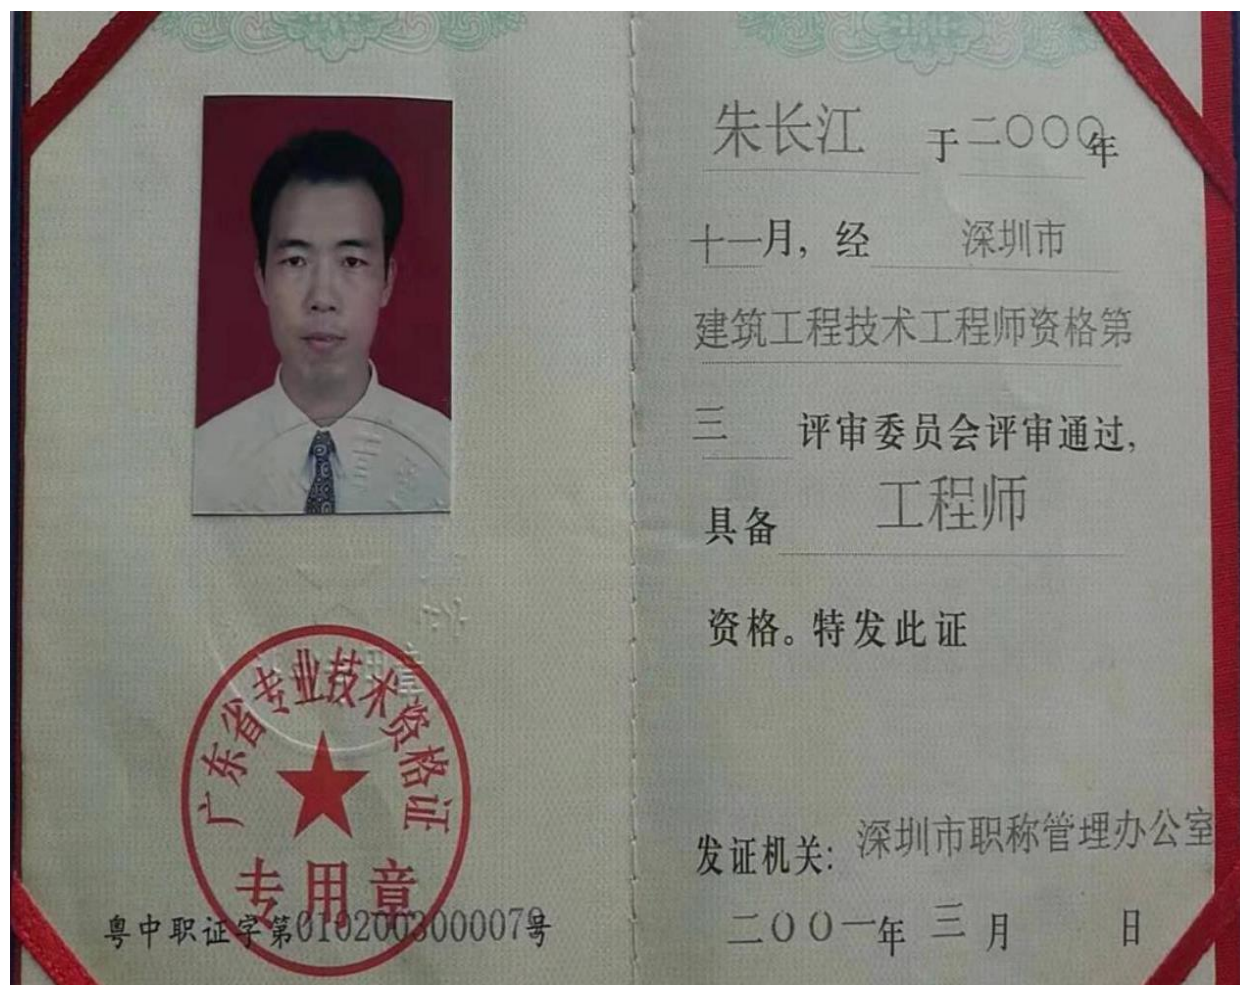 广东省专业技术资格证
专用章
粤中职证字第0102003000079号
朱长江 于二〇〇〇年
十一月，经 深圳市
建筑工程技术工程师资格第
三 评审委员会评审通过，
具备 工程师
资格。特发此证
发证机关：深圳市职称管理办公室
二〇〇一年 三 月 日